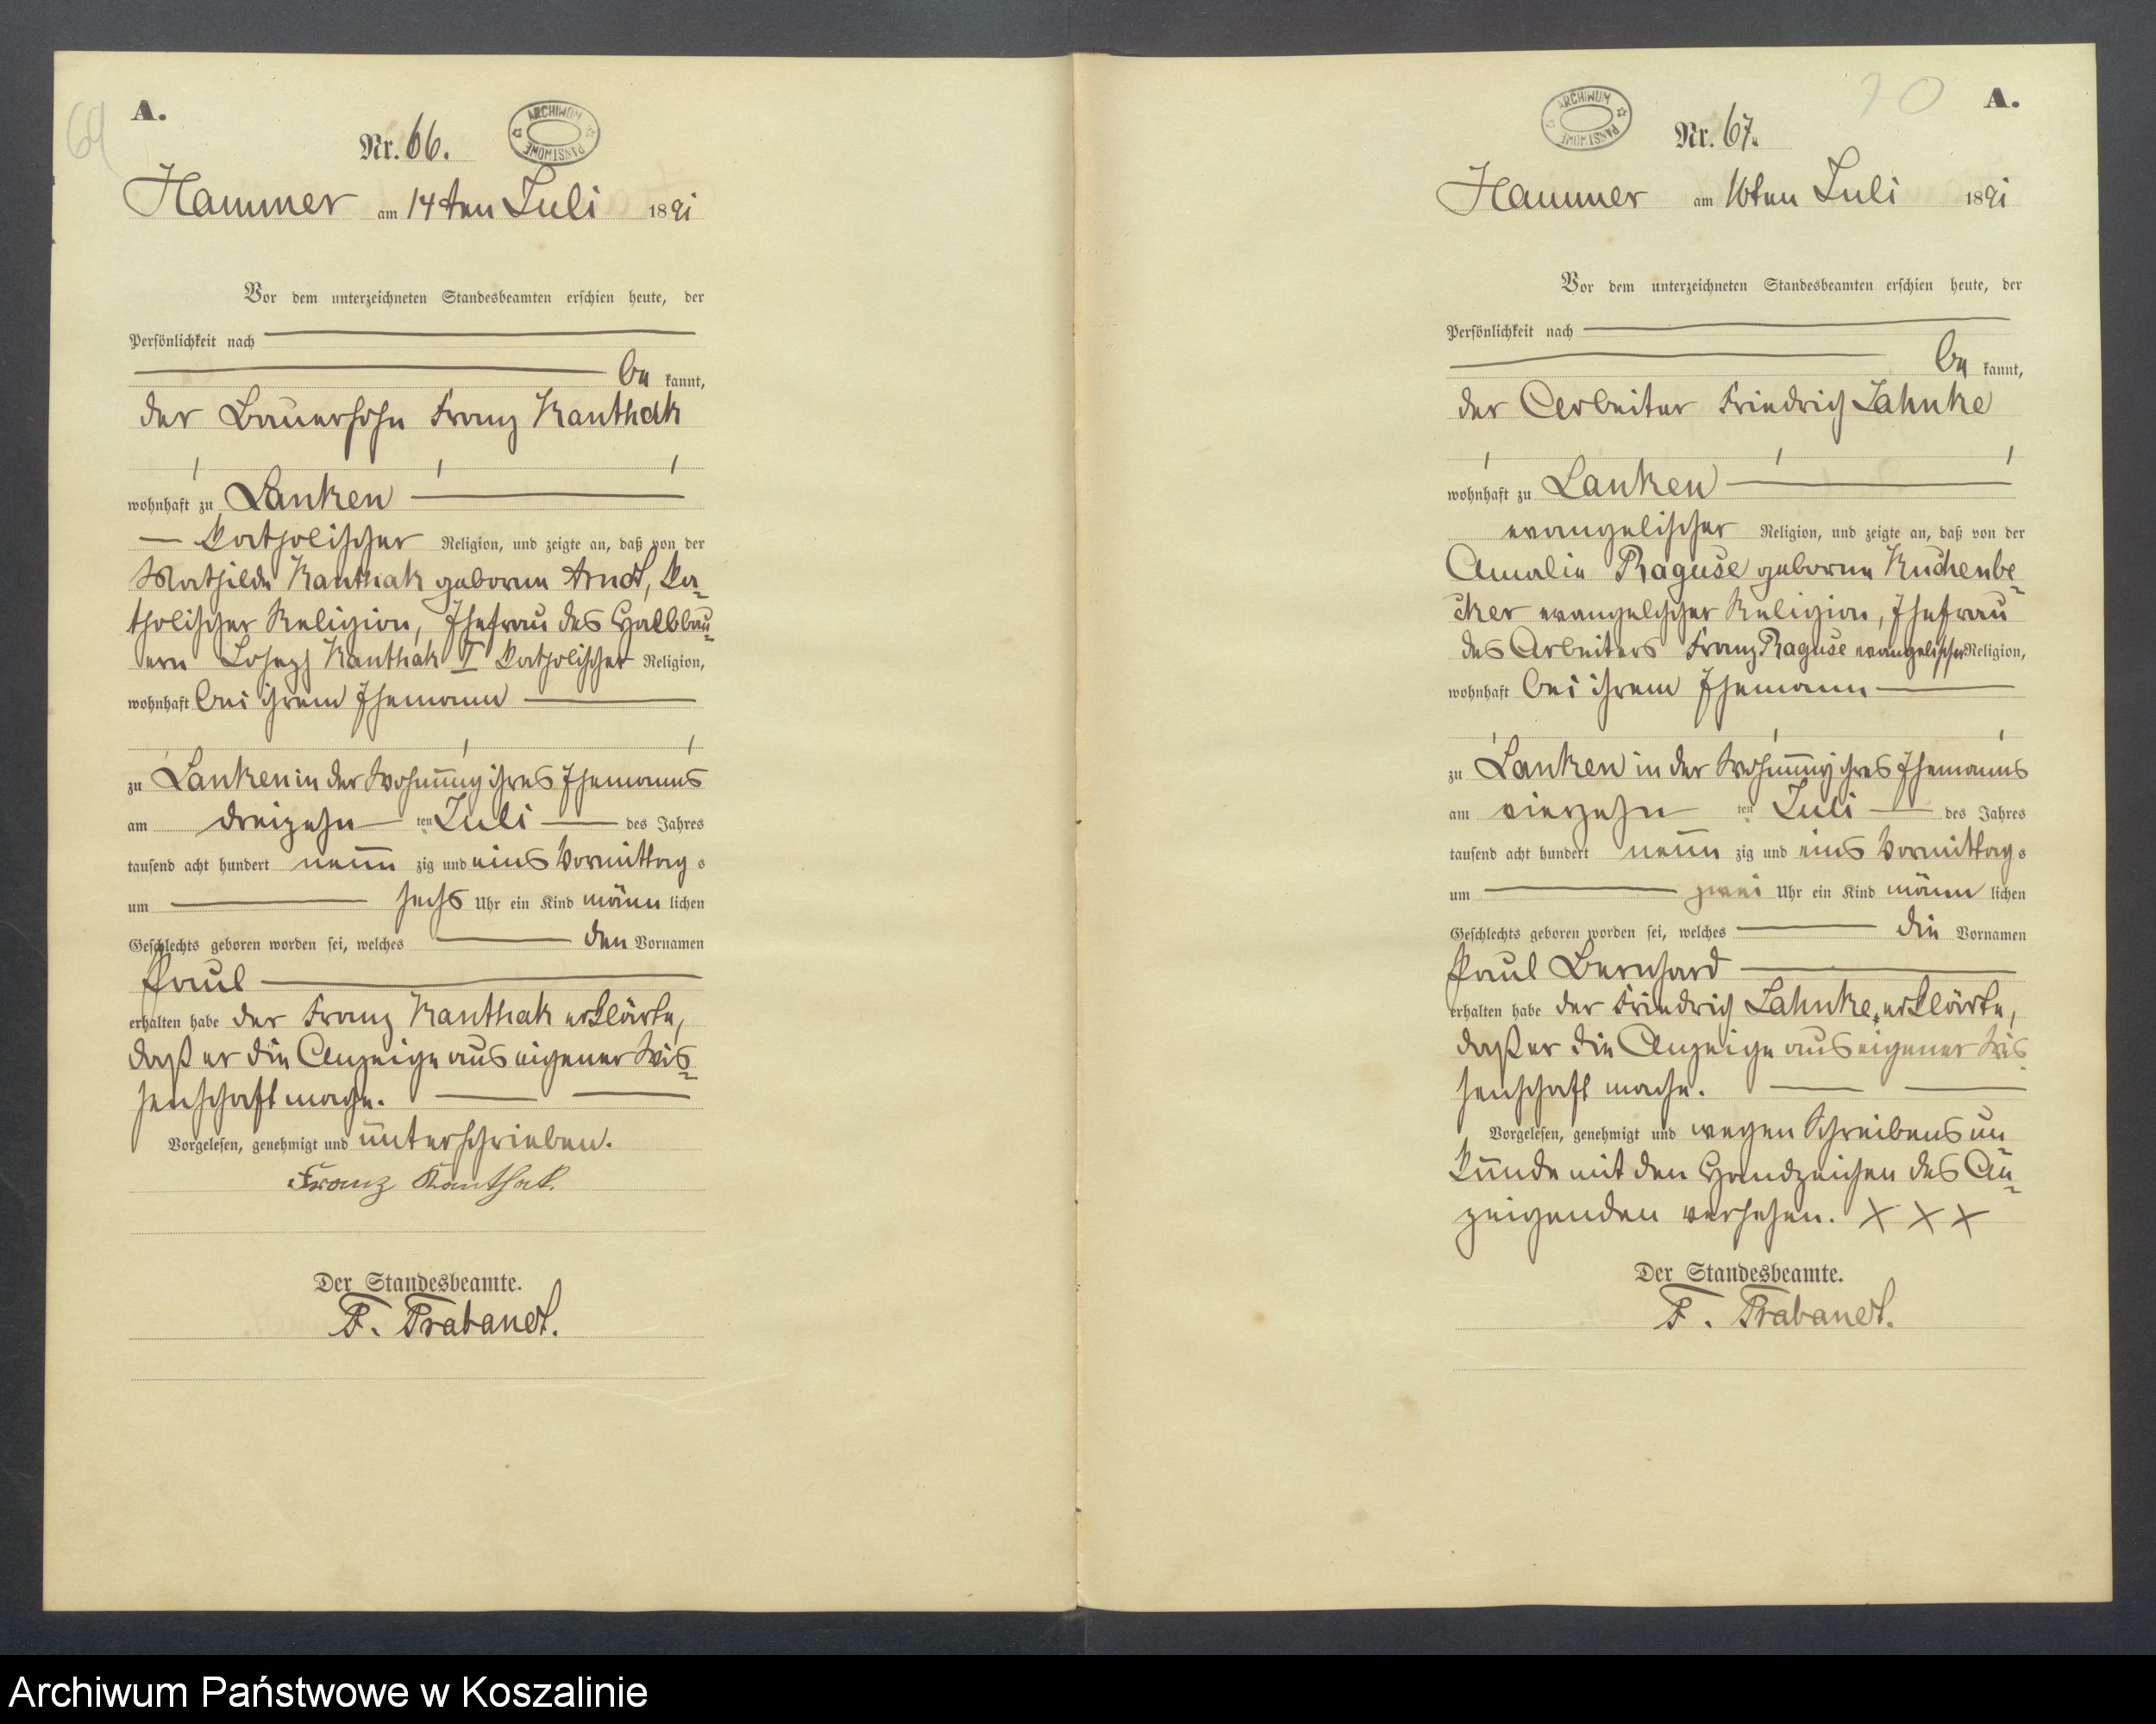 69
A.
ARCHIWUM PAŃSTWOWE
Nr. 66.
Hammer am 14ten Juli 1891
Vor dem unterzeichneten Standesbeamten erschien heute, der
Persönlichkeit nach
be kannt,
der Bauersohn Franz Kanthak
wohnhaft zu Lanken
katholischer Religion, und zeigte an, daß von der
Mathilde Kanthak geborene Arndt, ka-
tholischer Religion, Ehefrau des Halbbau-
ern Joseph Kanthak I katholischer Religion,
wohnhaft bei ihrem Ehemann
zu Lanken in der Wohnung ihres Ehemanns
am dreizehn ten Juli des Jahres
tausend acht hundert neun zig und eins Vormittag s
um sechs Uhr ein Kind männ lichen
Geschlechts geboren worden sei, welches den Vornamen
Paul
erhalten habe der Franz Kanthak erklärte,
daß er die Anzeige aus eigener Wis-
senschaft mache.
Vorgelesen, genehmigt und unterschrieben.
Franz Kanthak.
Der Standesbeamte.
F. Trabandt.
70
A.
ARCHIWUM PAŃSTWOWE
Nr. 67.
Hammer am 16ten Juli 1891
Vor dem unterzeichneten Standesbeamten erschien heute, der
Persönlichkeit nach
be kannt,
der Arbeiter Friedrich Jahnke
wohnhaft zu Lanken
evangelischer Religion, und zeigte an, daß von der
Amalie Raguse geborene Kuchenbe-
cker evangelischer Religion, Ehefrau
des Arbeiters Franz Raguse evangelischer Religion,
wohnhaft bei ihrem Ehemann
zu Lanken in der Wohnung ihres Ehemanns
am vierzehn ten Juli des Jahres
tausend acht hundert neun zig und eins Vormittag s
um zwei Uhr ein Kind männ lichen
Geschlechts geboren worden sei, welches die Vornamen
Paul Bernhard
erhalten habe der Friedrich Jahnke, erklärte,
daß er die Anzeige aus eigener Wis
senschaft mache.
Vorgelesen, genehmigt und wegen Schreibensun
kunde mit den Handzeichen des An-
zeigenden versehen. X X X
Der Standesbeamte.
F. Trabandt.
Archiwum Państwowe w Koszalinie